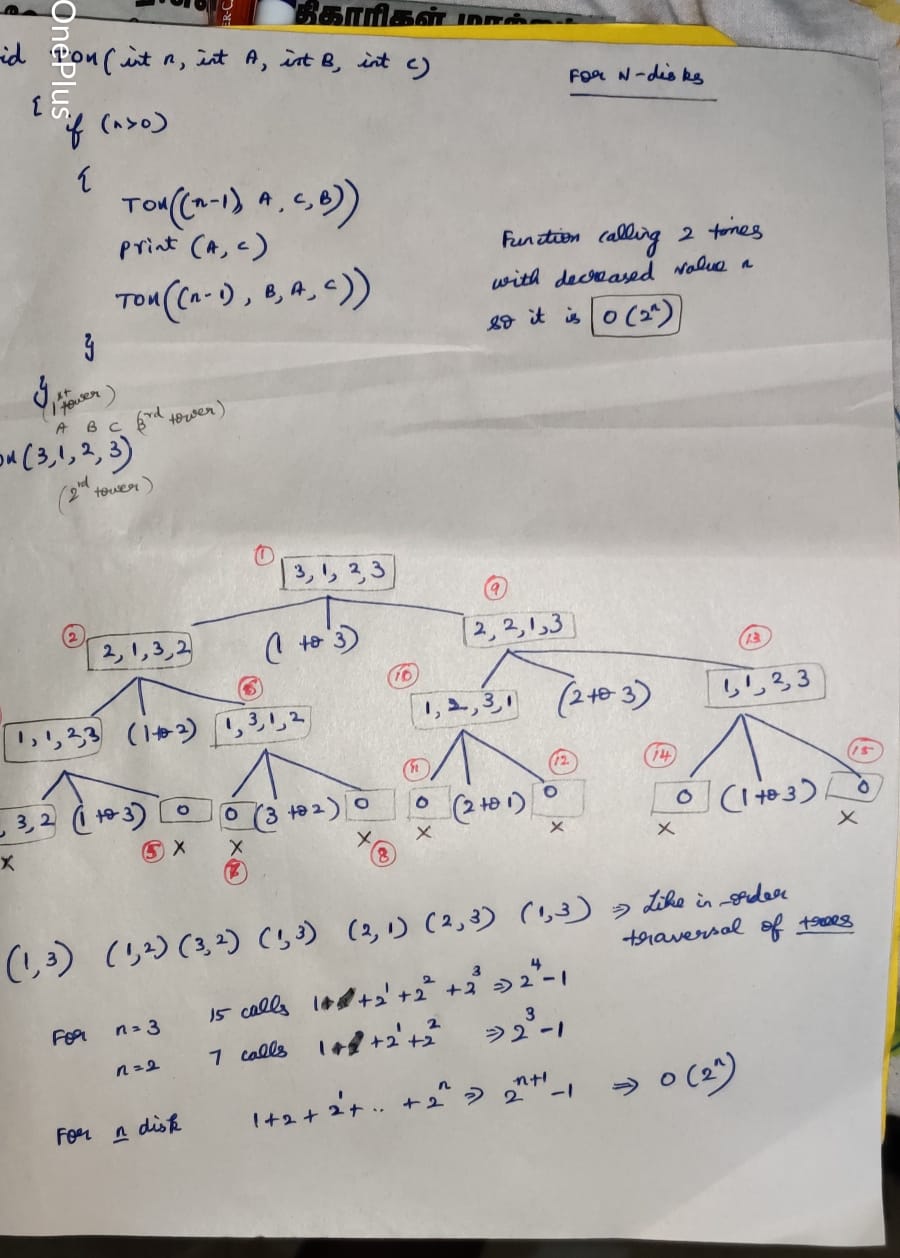 OnePlus
ER-C
திகாரிகள்
id TOH(int n, int A, int B, int C)
For N-disks
{
if (n>0)
{
TOH((n-1), A, C, B))
print (A, C)
TOH((n-1), B, A, C))
}
}
Function calling 2 times
with decreased value n
so it is O(2^n)
(1st tower)
A B C (3rd tower)
OH(3,1,2,3)
(2rd tower)
1 3, 1, 2, 3
9
2 2, 1, 3, 2 (1 to 3) 2, 2, 1, 3 13
1, 1, 2, 3 (1 to 2) 6 1, 3, 1, 2 10 1, 2, 3, 1 (2 to 3) 1, 1, 2, 3
11 12 14 15
, 3, 2 (1 to 3) 0 0 (3 to 2) 0 0 (2 to 1) 0 0 (1 to 3) 0
x 5 x x x 8 x x x x
7
(1,3) (1,2) (3,2) (1,3) (2,1) (2,3) (1,3) ⇒ Like in-order
traversal of trees
For n=3 15 calls 1+2^1+2^2+2^3 ⇒ 2^4-1
n=2 7 calls 1+2^1+2^2 ⇒ 2^3-1
For n disk 1+2+2^1+..+2^n ⇒ 2^n+1-1 ⇒ O(2^n)